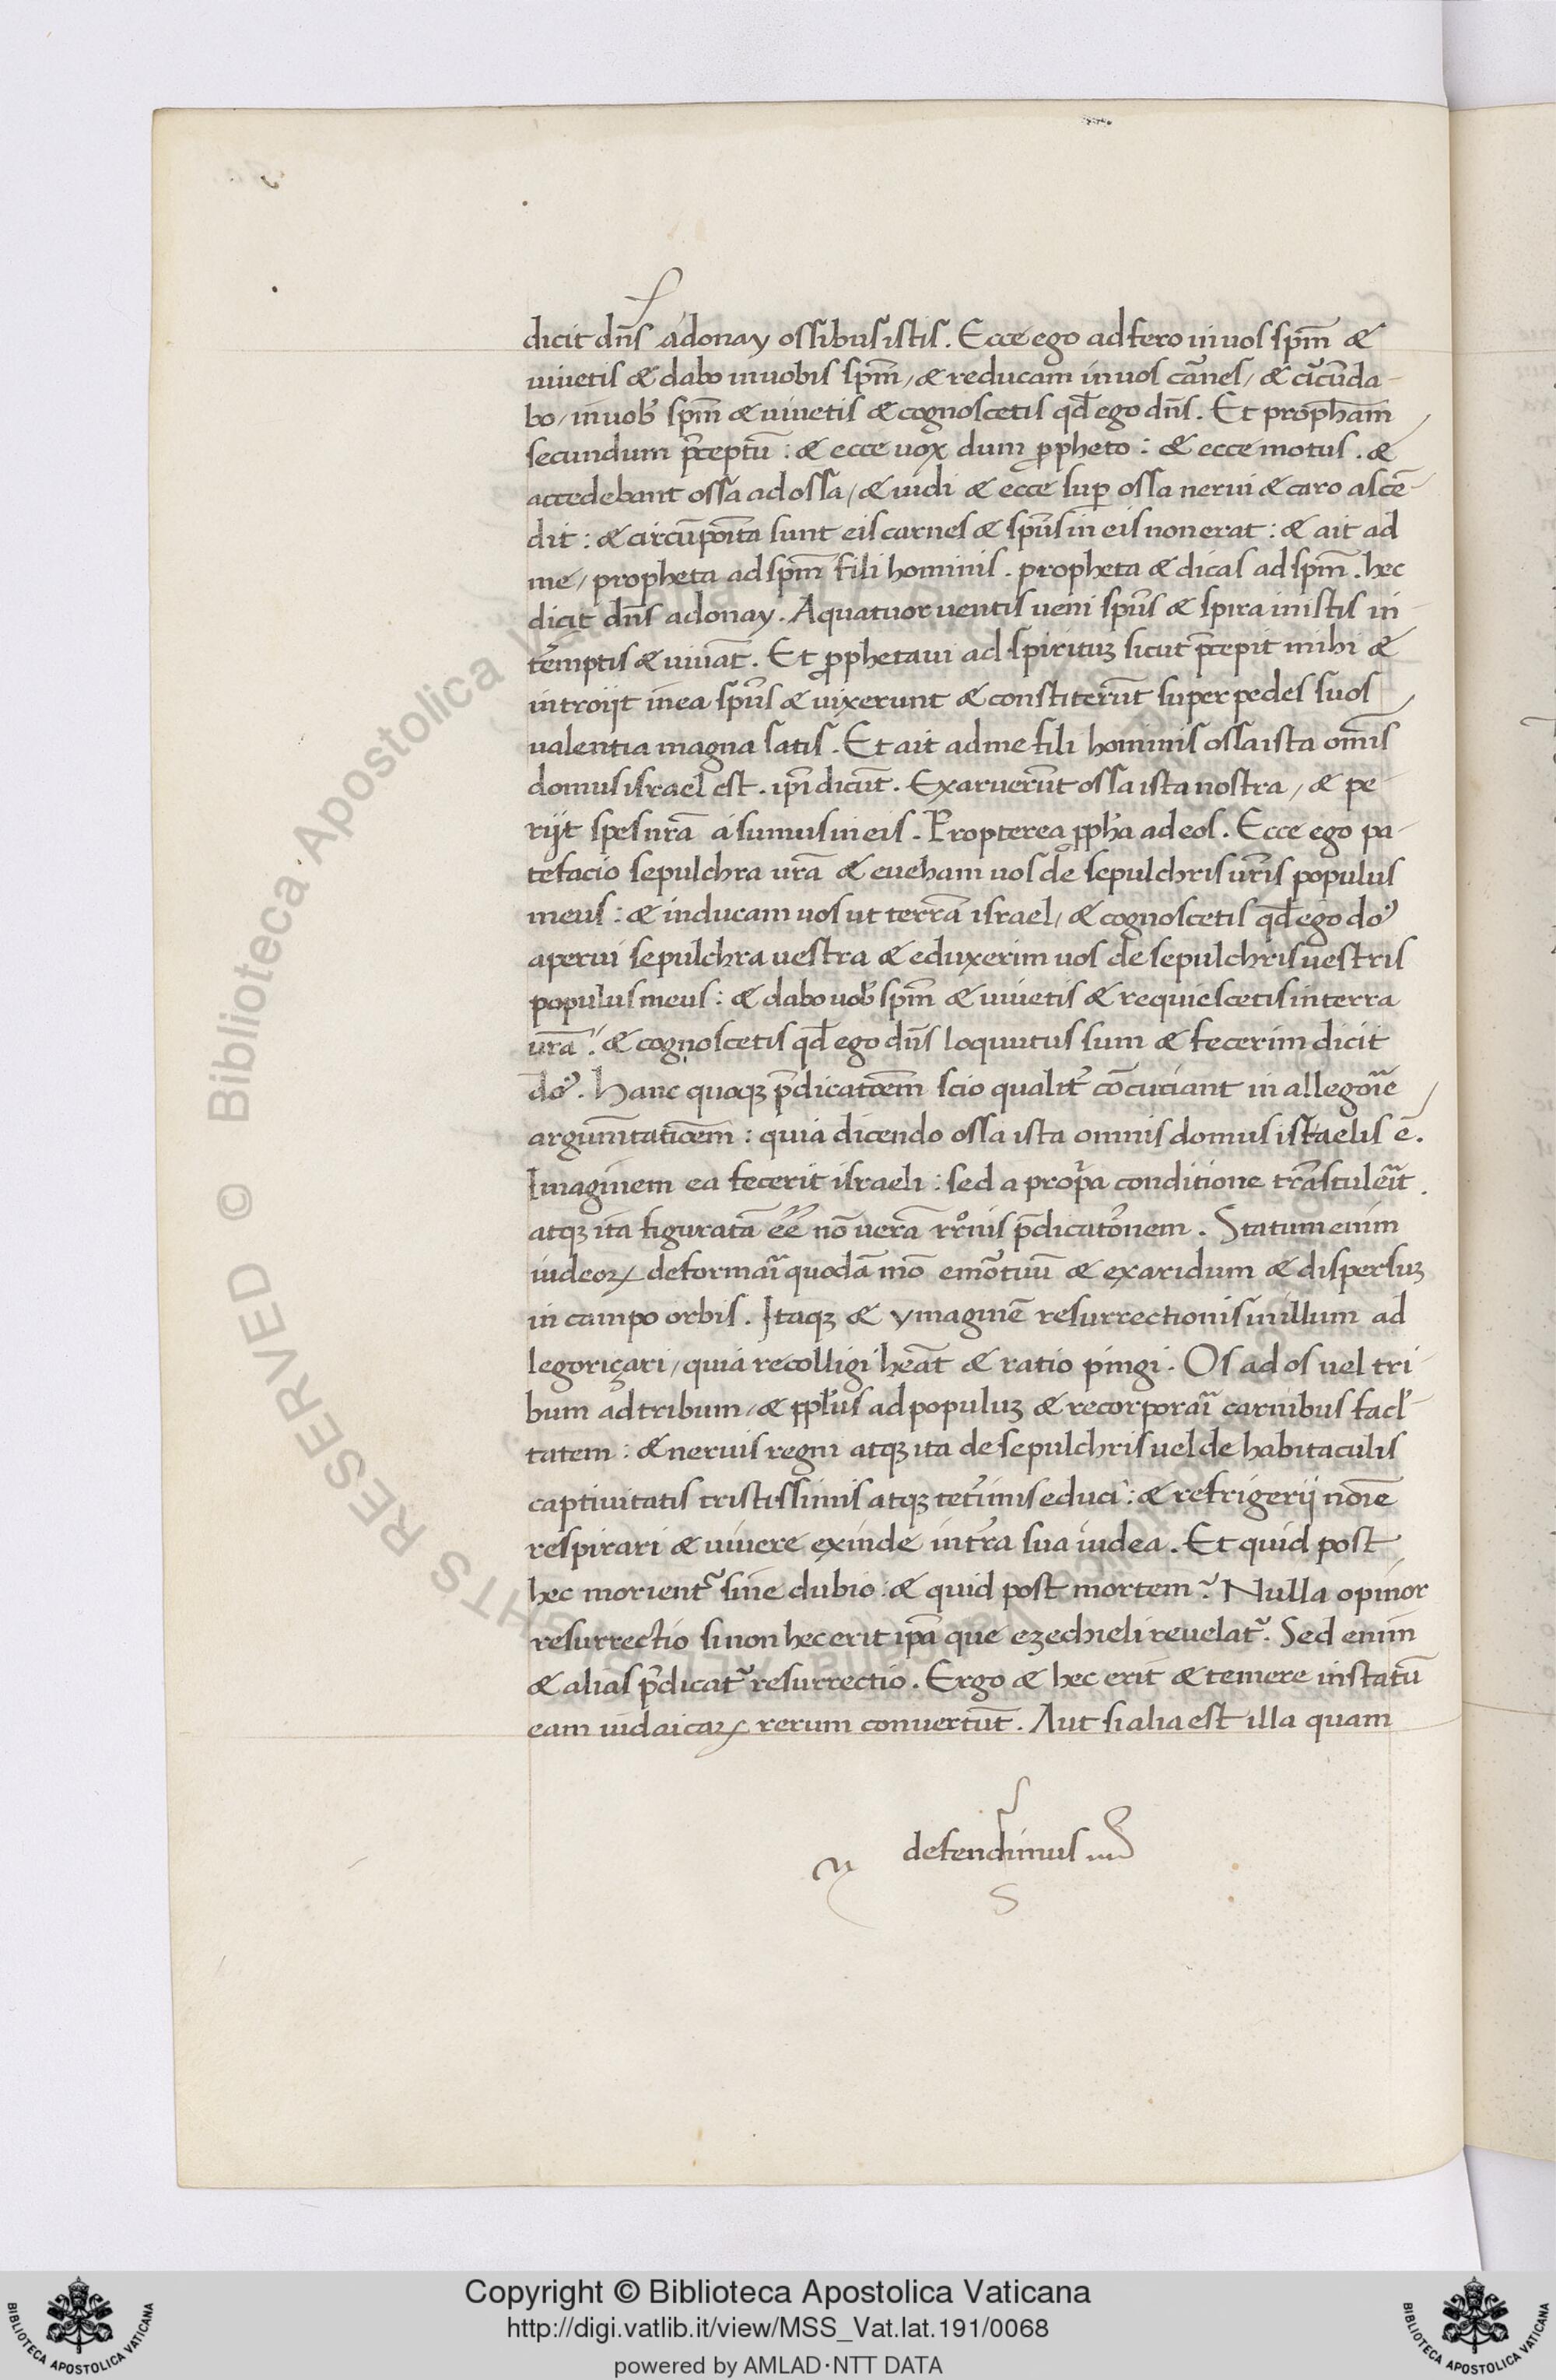 dicit dn̄s adonay ossibus istis. Ecce ego adfero in uos spm̄ &
uiuetis & dabo in uobis spm̄, & reducam in uos car̄nes, & cir̄cūda-
bo, in uob᷒ spm̄ & uiuetis & cognoscetis qd̄ ego dn̄s. Et prophetām
secundum p̄ceptū: & ecce uox dum ꝓpheto: & ecce motus. &
accedebant ossa ad ossa, & uidi & ecce suꝑ ossa nerui & caro ascē-
dit: & circūpoīta sunt eis carnes & spūs in eis non erat: & ait ad
me, propheta ad spm̄ fili hominis. propheta & dicas ad spm̄. hec
dicit dn̄s adonay. A quatuor uentis ueni spūs & spira in istis in-
tēmptis & uiuāt. Et ꝓphetaui ad spirituꝫ sicut p̄cepit mihi &
introijt in ea spūs & uixerunt & constiterūt super pedes suos
ualentia magna satis. Et ait ad me fili hominis ossa ista om̄is
domus israel est. ip̄i dicūt. Exaruerūt ossa ista nostra, & pe-
rijt spes nr̄a a sumus in eis. Propterea ꝓph̄a ad eos. Ecce ego pa-
tefacio sepulchra ur̄a & eueham uos de sepulchris ur̄is populus
meus: & inducam uos ut terrā israel, & cognoscetis qd̄ ego do᷒
aperui sepulchra uestra & eduxerim uos de sepulchris uestris
populus meus: & dabo uob᷒ spm̄ & uiuetis & requiescetis in terra
ur̄a: & cognoscetis qd̄ ego dn̄s loquutus sum & fecerim dicit
do᷒. Hanc quoqꝫ p̄dicatōem scio qualit᷒ cōcutiant in allegorīe
argum̄tatiōem: quia dicendo ossa ista omnis domus istaelis ē.
Imaginem ea fecerit israeli: sed a prop̄a conditione trāstulēīt.
atqꝫ ita figuratā ēē nō uerā rr̊nis p̄dicatōnem. Statum enim
iudeoꝝ deformaī quodā mō emōtuū & exaridum & dispersuꝫ
in campo orbis. Itaqꝫ & ymaginē resurrectionis in illum ad
legoriçari, quia recolligi hēat & ratio pingi. Os ad os uel tri-
bum ad tribum, & ppl̄us ad populuꝫ & recorporaī carnibus facl᷒-
tatem: & neruis regni atqꝫ ita de sepulchris uel de habitaculis
captiuitatis tristissimis atqꝫ tet᷒imis educi: & refrigerij noīe
respirari & uiuere exinde in t᷒ra sua iudea. Et quid post
hec morient᷒ sine dubio: & quid post mortem? Nulla opinor
resurrectio si non hec erit ip̄a que ezechieli reuelat᷒. Sed enim
& alias p̄dicat᷒ resurrectio. Ergo & hec erit & temere in statū
eam iudaicaꝝ rerum conuertūt. Aut si alia est illa quam
defendimus
Copyright © Biblioteca Apostolica Vaticana
http://digi.vatlib.it/view/MSS_Vat.lat.191/0068
powered by AMLAD·NTT DATA
BIBLIOTECA APOSTOLICA VATICANA
BIBLIOTECA APOSTOLICA VATICANA